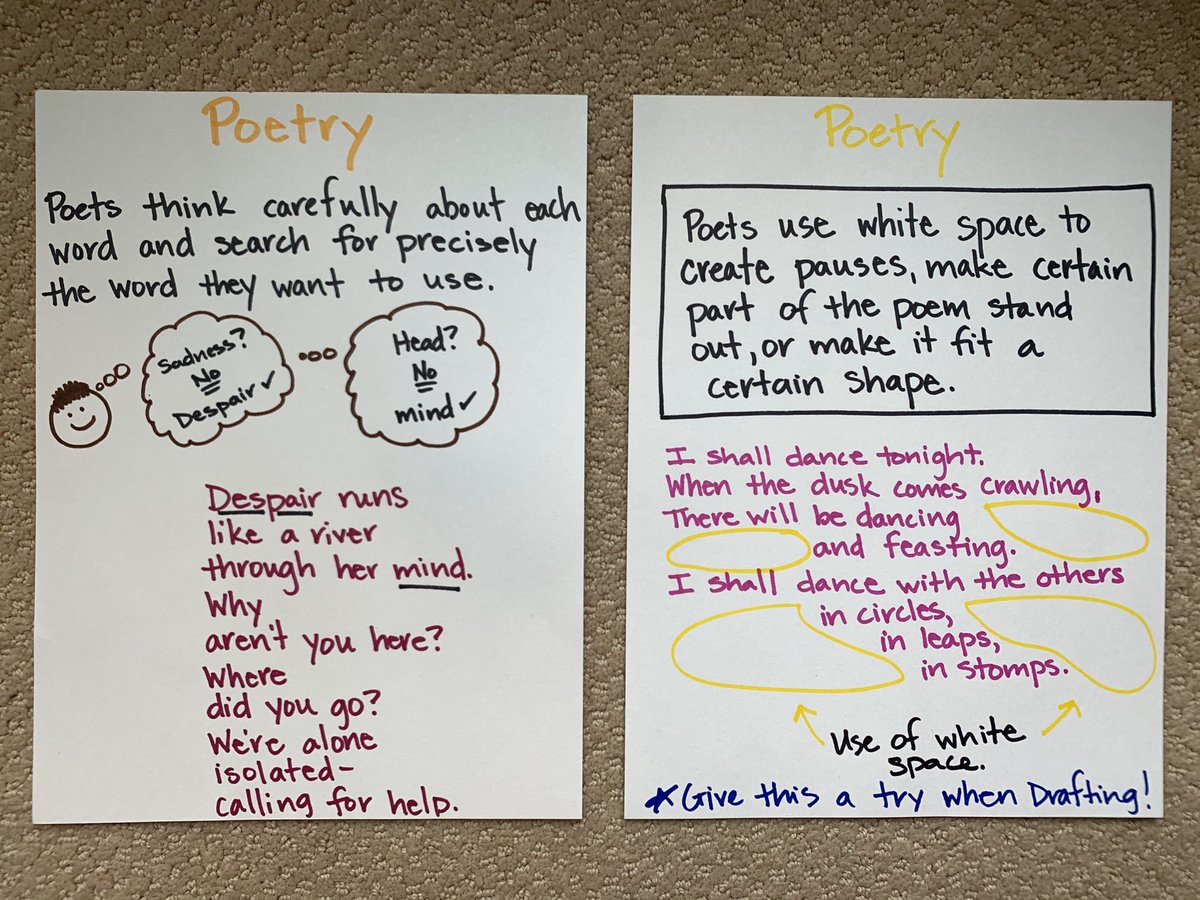 Poetry
Poets think carefully about each
word and search for precisely
the word they want to use.
Sadness?
No
Despair ✓
Head?
No
mind ✓
Despair runs
like a river
through her mind.
Why
aren't you here?
Where
did you go?
We're alone
isolated-
calling for help.
Poetry
Poets use white space to
create pauses, make certain
part of the poem stand
out, or make it fit a
certain shape.
I shall dance tonight.
When the dusk comes crawling,
There will be dancing
and feasting.
I shall dance with the others
in circles,
in leaps,
in stomps.
Use of white
space.
*Give this a try when Drafting!